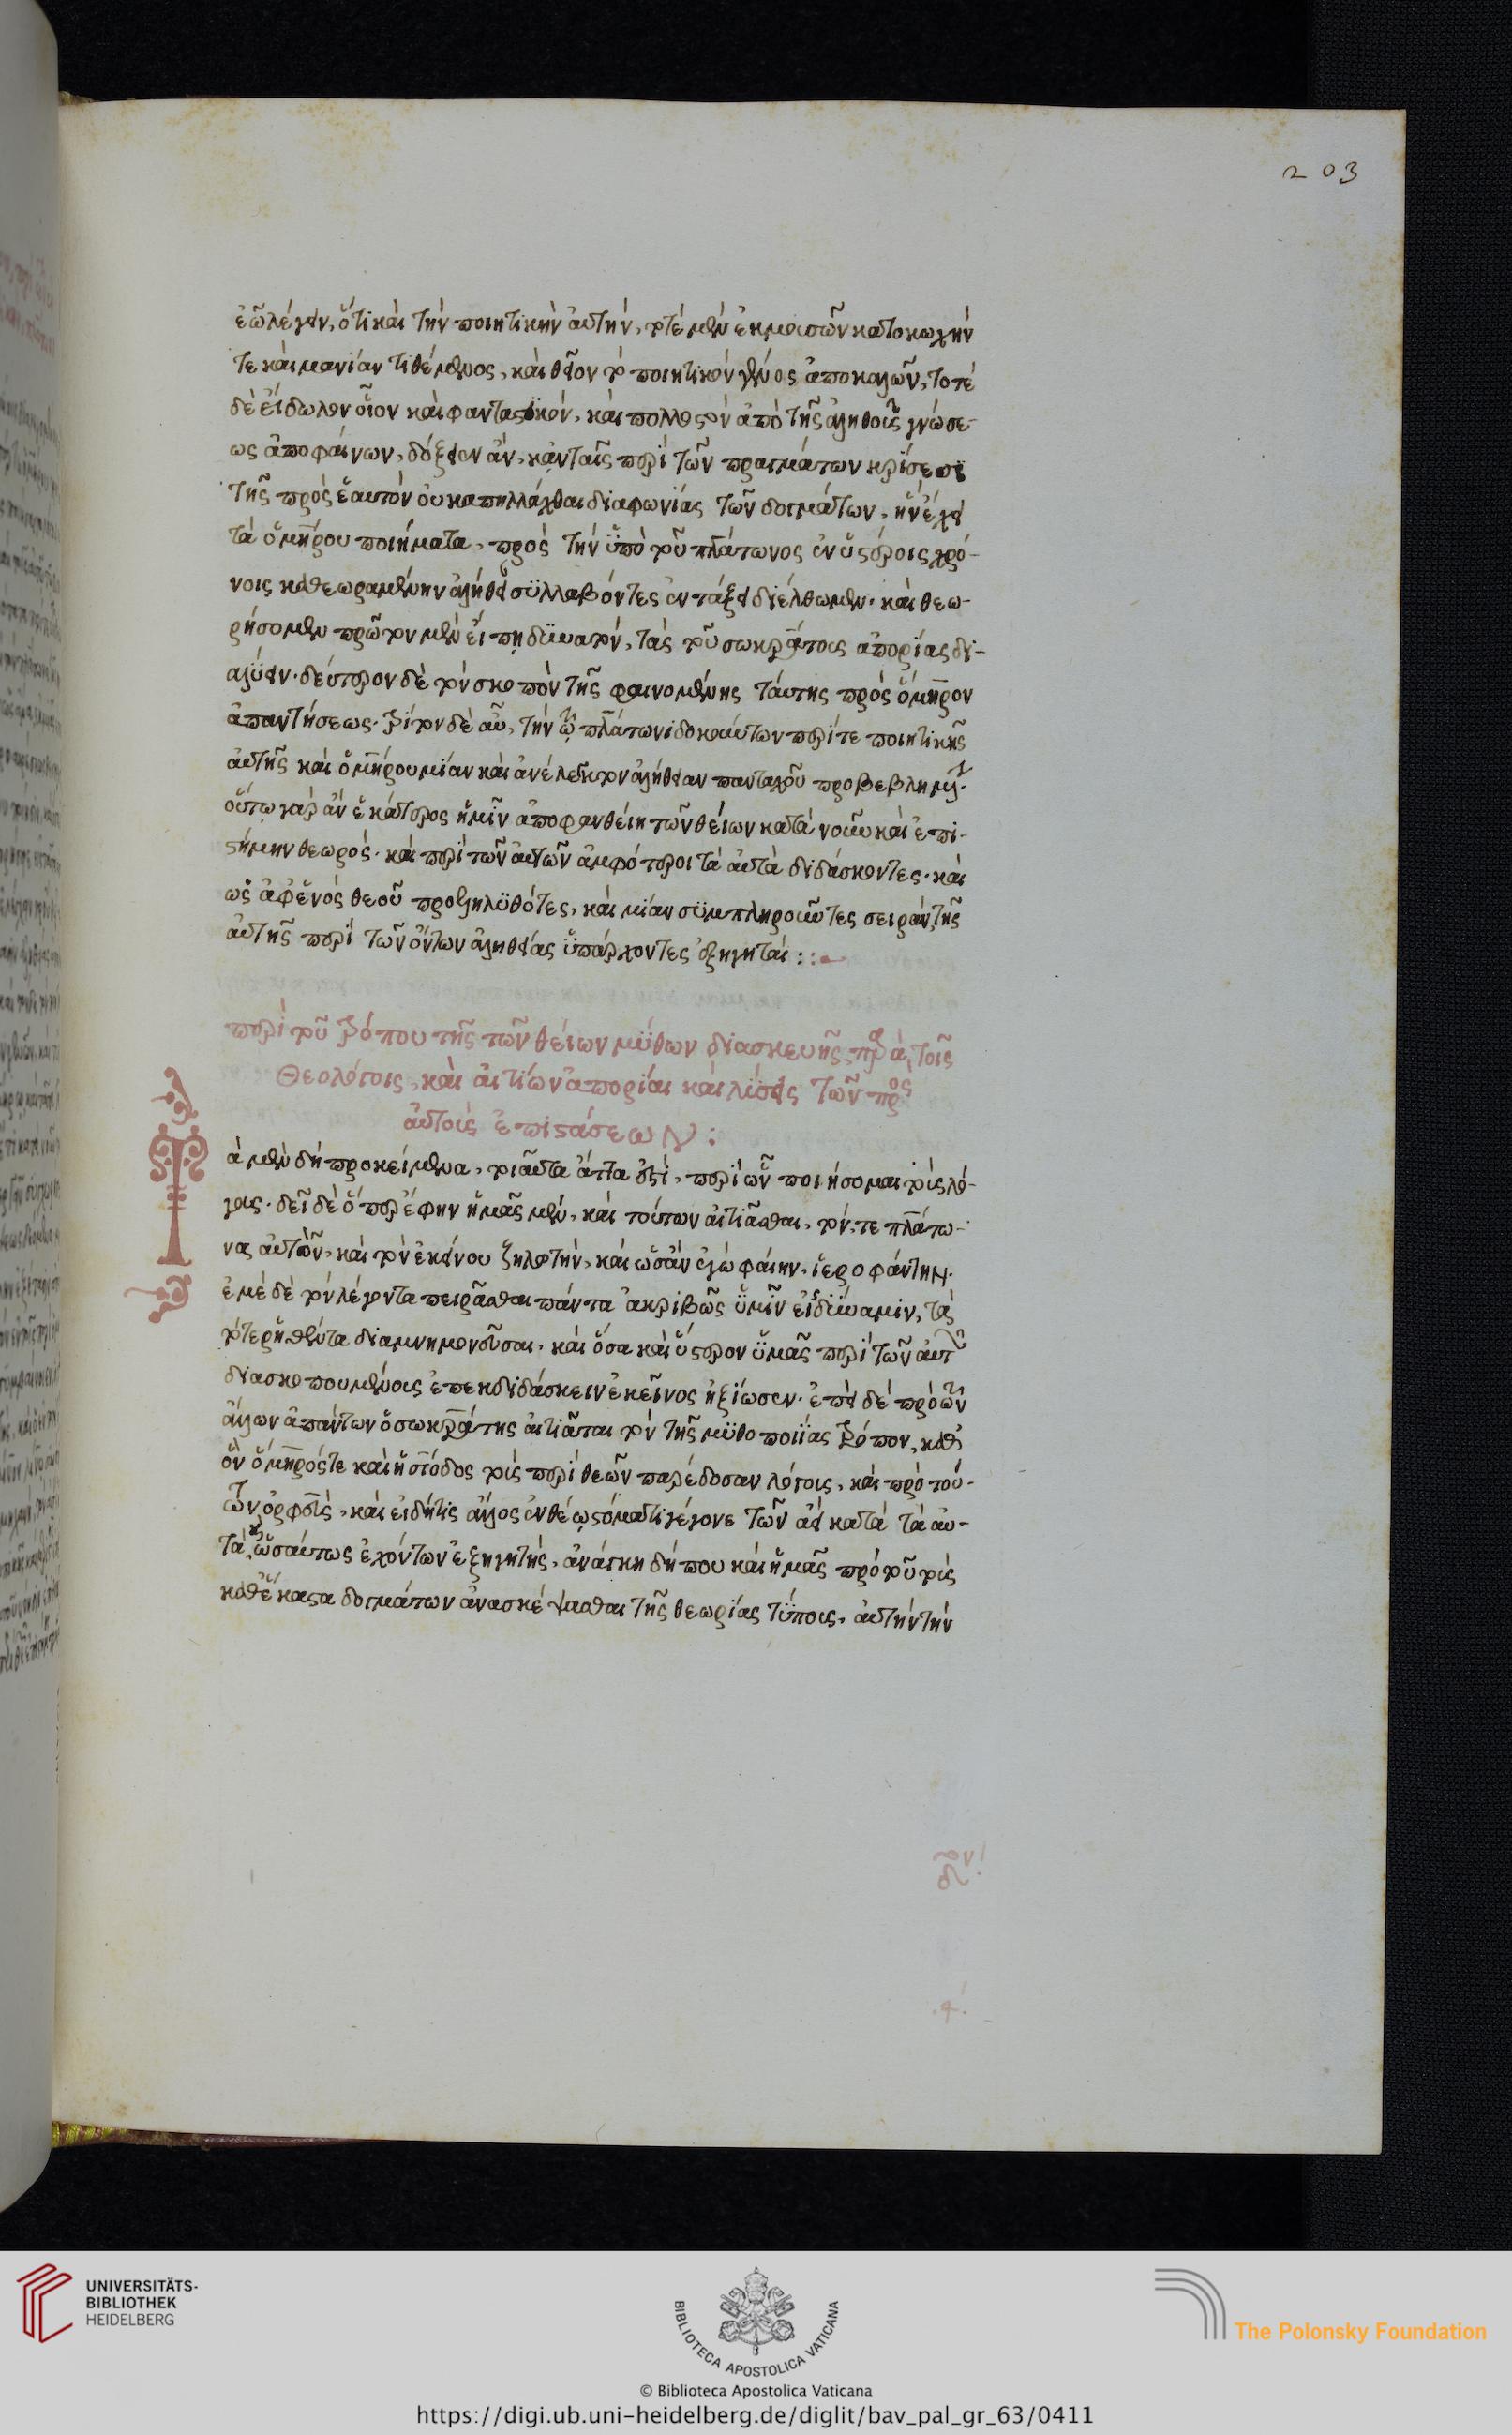 203
ἐῶ λέγειν, ὅτι καὶ τὴν ποιητικὴν αὐτὴν, τοτὲ μὲν ἐκ μουσῶν κατοκωχήν
τε καὶ μανίαν τιθέμενος, καὶ θεῖον τὸ ποιητικὸν γένος ἀποκαλῶν, τοτὲ
δὲ εἰδωλον οἷον καὶ φανταστικὸν, καὶ πολλοστὸν ἀπὸ τῆς ἀληθοῦς γνώσε-
ως ἀποφαίνων, δόξειεν ἂν, κἀν ταῖς περὶ τῶν πραγμάτων κρίσεσι
τῆς πρὸς ἑαυτὸν οὐκ ἀπηλλάχθαι διαφωνίας τῶν δογμάτων, ἣν ἔχει
τὰ ὁμήρου ποιήματα, πρὸς τὴν ὑπὸ τοῦ πλάτωνος ἐν ὑστέροις χρό-
νοις καθεωραμένην ἀλήθει συλλαβόντες ἐν τάξει διέλθωμεν. καὶ θεω-
ρήσομεν πρῶτον μὲν εἴ πῃ δυνατὸν, τὰς τοῦ σωκράτους ἀπορίας δι-
αλύειν. δεύτερον δὲ τὸν σκοπὸν τῆς φαινομένης ταύτης πρὸς ὅμηρον
ἀπαντήσεως. τρίτον δὲ αὖ, τὴν τῷ πλάτωνι δοκούντων περί τε ποιητικῆς
αὐτῆς καὶ ὁμήρου μίαν καὶ ἀνέλεγκτον ἀλήθειαν πανταχοῦ προβεβλημένην.
οὕτω γὰρ ἂν ἑκάτερος ἡμῖν ἀποφανθείη τῶν θείων κατὰ νοῦν καὶ ἐπι-
στήμην θεωρός. καὶ περὶ τῶν αὐτῶν ἀμφότεροι τὰ αὐτὰ διδάσκοντες. καὶ
ὡς ἀφ ἑνὸς θεοῦ προεληλυθότες, καὶ μίαν συμπληροῦντες σειρὰν, τῆς
αὐτῆς περὶ τῶν ὄντων ἀληθείας ὑπάρχοντες ἐξηγηταί :
περὶ τοῦ τρόπου τῆς τῶν θείων μύθων διασκευῆς, παρὰ τοῖς
θεολόγοις, καὶ αἰτίων ἀπορίαι καὶ λύσεις τῶν πρὸς
αὐτοὺς ἐπιστάσεων :
Τὰ μὲν δὴ προκείμενα, τοιαῦτα ἄττα ἐστί, περὶ ὧν ποιήσομαι τοὺς λό-
γους. δεῖ δὲ ὅπερ ἔφην ἡμᾶς μὲν, καὶ τούτων αἰτιᾶσθαι, τόν τε πλάτω-
να αὐτὸν, καὶ τὸν ἐκείνου ζηλωτὴν, καὶ ὡς ἂν ἐγὼ φαίην, ἱεροφάντην.
ἐμὲ δὲ τὸν λέγοντα πειρᾶσθαι πάντα ἀκριβῶς ὑμῖν εἰς δύναμιν, τά
τότε ῥηθέντα διαμνημονεῦσαι, καὶ ὅσα καὶ ὕστερον ὑμᾶς περὶ τῶν αὐτῶν
διασκοπουμένους ἐπεκδιδάσκειν ἐκεῖνος ἠξίωσεν. ἐπεὶ δὲ πρὸ τῶν
ἄλλων ἁπάντων ὁ σωκράτης αἰτιᾶται τὸν τῆς μυθοποιίας τρόπον, καθ
ὃν ὅμηρός τε καὶ ἡσίοδος τοὺς περὶ θεῶν παρέδοσαν λόγους, καὶ πρὸ τού-
των, ὀρφεύς, καὶ εἰ δή τις ἄλλος ἐνθέῳ στόματι γέγονε τῶν ἀεὶ κατὰ τὰ αὐ-
τὰ καὶ ὡσαύτως ἐχόντων ἐξηγητής, ἀνάγκη δή που καὶ ἡμᾶς πρὸ τοῦ τοὺς
καθ ἕκαστα δογμάτων ἀνασκέψασθαι τῆς θεωρίας τύπους, αὐτὴν τὴν
UNIVERSITÄTS-
BIBLIOTHEK
HEIDELBERG
BIBLIOTECA APOSTOLICA VATICANA
The Polonsky Foundation
© Biblioteca Apostolica Vaticana
https://digi.ub.uni-heidelberg.de/diglit/bav_pal_gr_63/0411